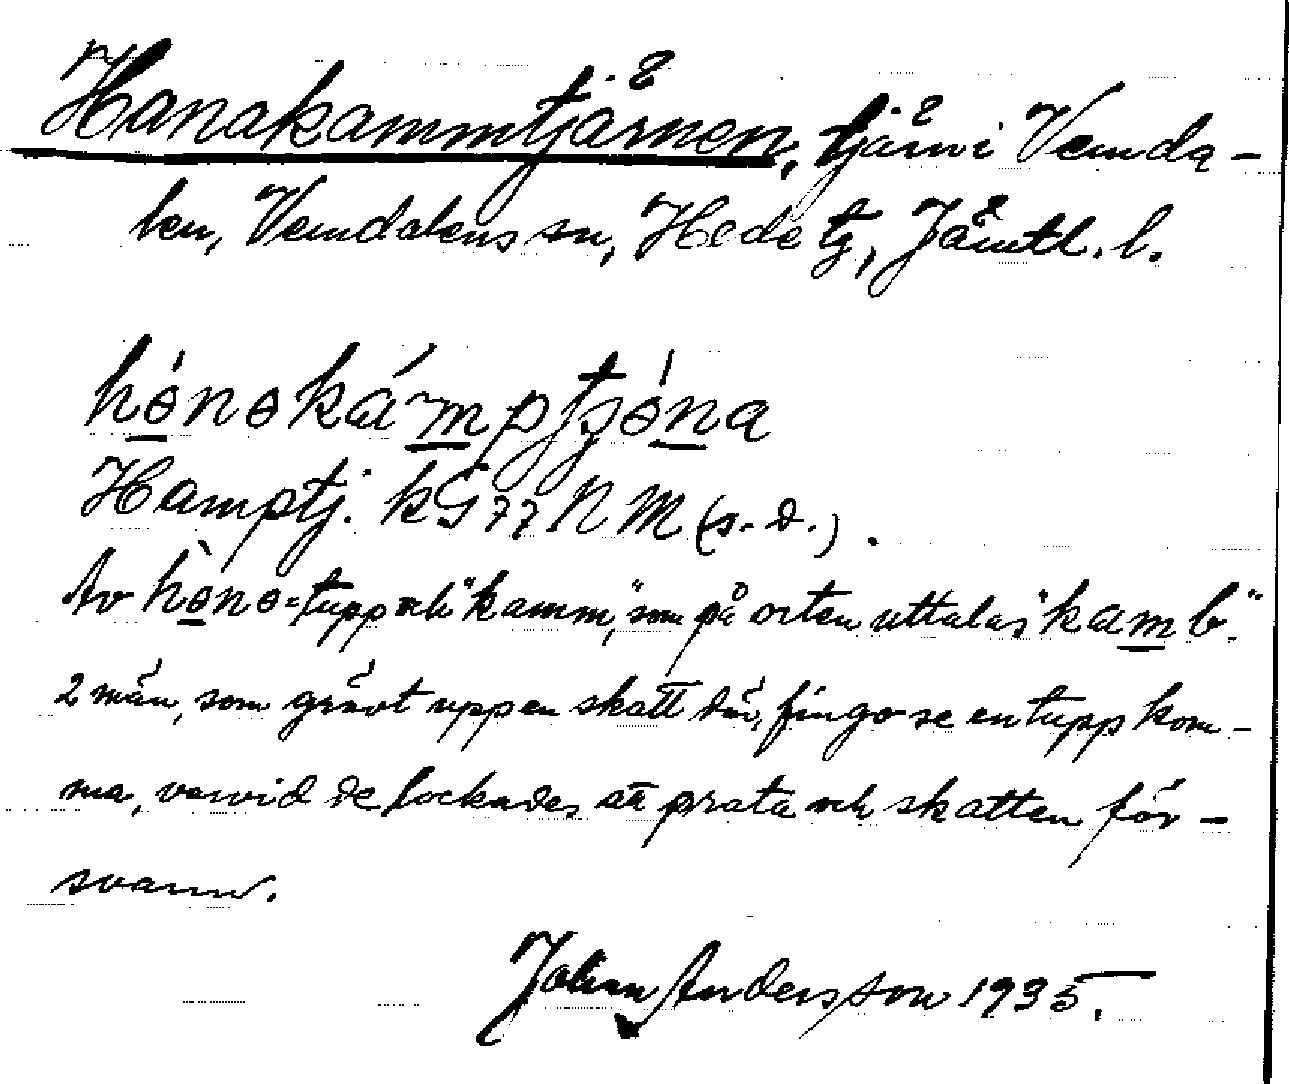 Hanakammtjärnen, tjärn i Vemda-
len, Vemdalens sn, Hede tg, Jämtl. l.
hónokámptjóna
Hamptj. kG77NM (s. d.).
Av hòno - tupp och "kamm", som på orten uttalas "kamb".
2 män, som grävt upp en skatt där, fingo se en tupp kom-
ma, varvid de lockades att prata och skatten för-
svann.
Johan Andersson 1935.